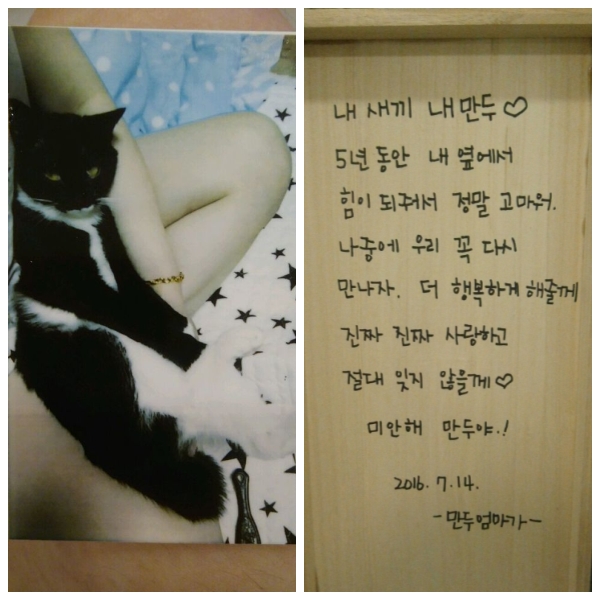 내 새끼 내만두♡
5년 동안 내 옆에서
힘이 되줘서 정말 고마워.
나중에 우리 꼭 다시
만나자. 더 행복하게 해줄께
진짜 진짜 사랑하고
절대 잊지 않을게♡
미안해 만두야.!
2016. 7. 14.
-만두엄마가-